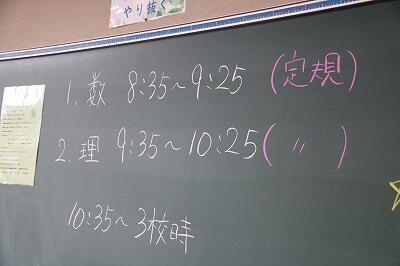 やり抜く
1. 数 8:35～9:25 (定規)
2. 理 9:35～10:25(〃)
10:35～3校時